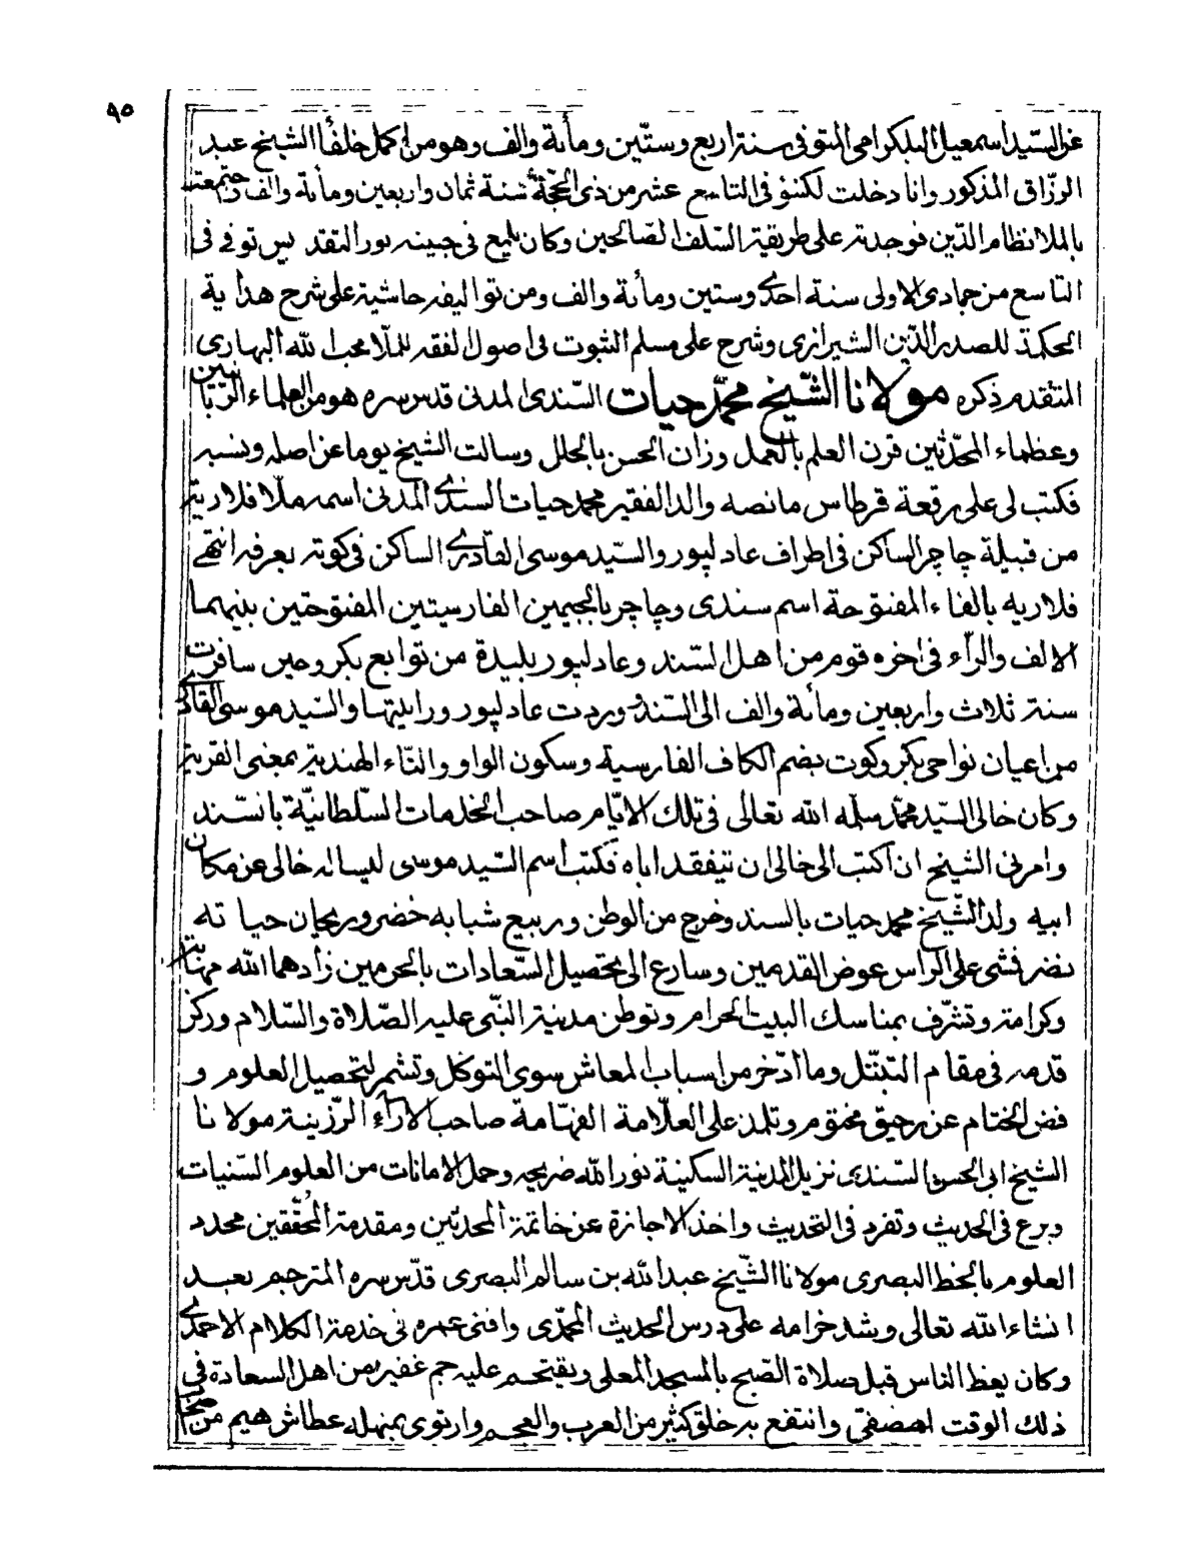 ٩٥
عن السّيد اسمعيل البلكرامى المتوفى سنة اربع وستّين ومأئة والف وهو من اكمل خلفأ الشيخ عبد
الرزّاق المذكور وانا دخلت لكنؤ فى التاسع عشر من ذى الحجّة سنة ثمان واربعين ومأئة والف واجتمعت
بالملا نظام الدّين فوجدته على طريقة السّلف الصّالحين وكان يلمع فى جبينه نور التقديس توفى فى
التاسع من جمادى الاولى سنة احدى وستين ومأئة والف ومن تواليفه حاشية على شرح هداية
الحكمة للصدر الدّين الشيرازى وشرح على مسلم الثبوت فى اصول الفقه للملّا محب الله البهارى
المتقدم ذكره مولانا الشّيخ محمّد حيات السّندى المدنى قدس سره هو من العلماء الربّانيين
وعظماء المحدّثين قرن العلم بالعمل وزان الحسن بالحلل وسالت الشيخ يوما عن اصله ونسبه
فكتب لى على رقعة قرطاس ما نصه والد الفقير محمد حيات السندى المدنى اسمه ملّا فلاريه
من قبيلة چاچر الساكن فى اطراف عادلپور والسّيد موسى القادرى الساكن فى كوته يعرفه انتهى
فلاريه بالفاء المفتوحة اسم سندى وچاچر بالجيمين الفارسيتين المفتوحتين بينهما
الالف والرّاء فى اخره قوم من اهل السّند وعادلپور بليدة من توابع بكر وحين سافرت
سنة ثلاث واربعين ومأئة والف الى السّند وردت عادلپور ورايتها والسّيد موسى القادرى
من اعيان نواحى بكر وكوت بضم الكاف الفارسية وسكون الواو والتّاء الهندية بمعنى القرية
وكان خالى السّيد محمّد سلّمه الله تعالى فى تلك الايّام صاحب الخدمات السّلطانيّة بالسّند
وامرنى الشيخ ان اكتب الى خالى ان يتفقد اباه فكتب اسم السّيد موسى ليساله خالى عن مكان
ابيه ولد الشّيخ محمد حيات بالسند وخرج من الوطن وربيع شبابه خضر وريحان حياته
نضر فمشى على الرأس عوض القدمين وسارع الى تحصيل السّعادات بالحرمين زادهما الله مهابة
وكرامة وتشرّف بمناسك البيت الحرام وتوطن مدينة النّبى عليه الصّلاة والسّلام وركز
قدمه فى مقام التبتّل وما ادّخر من اسباب المعاش سوى التوكل وتشمر لتحصيل العلوم و
فض الختام عن رحيق مختوم وتلمذ على العلّامة الفهّامة صاحب الآرآء الرّزينة مولانا
الشيخ ابى الحسن السّندى نزيل المدينة السكينة نور الله ضريحه وحمل الامانات من العلوم السّنيات
وبرع فى الحديث وتفرد فى التحديث واخذ الاجازة عن خاتمة المحدثين ومقدمة المحُقّقين محدد
العلوم بالخط البصرى مولانا الشّيخ عبد الله بن سالم البصرى قدّس سره المترجم بعد
انشاء الله تعالى وشد خرامه على درس الحديث المحمّدى وافنى عمره فى خدمة الكلام الاحمدى
وكان يعظ الناس قبل صلاة الصّبح بالمسجد المعلى ويقتحم عليه جم غفير من اهل السعادة فى
ذلك الوقت وانتفع به خلق كثير من العرب والعجم وارتوى بمنهله عطاش هيم من